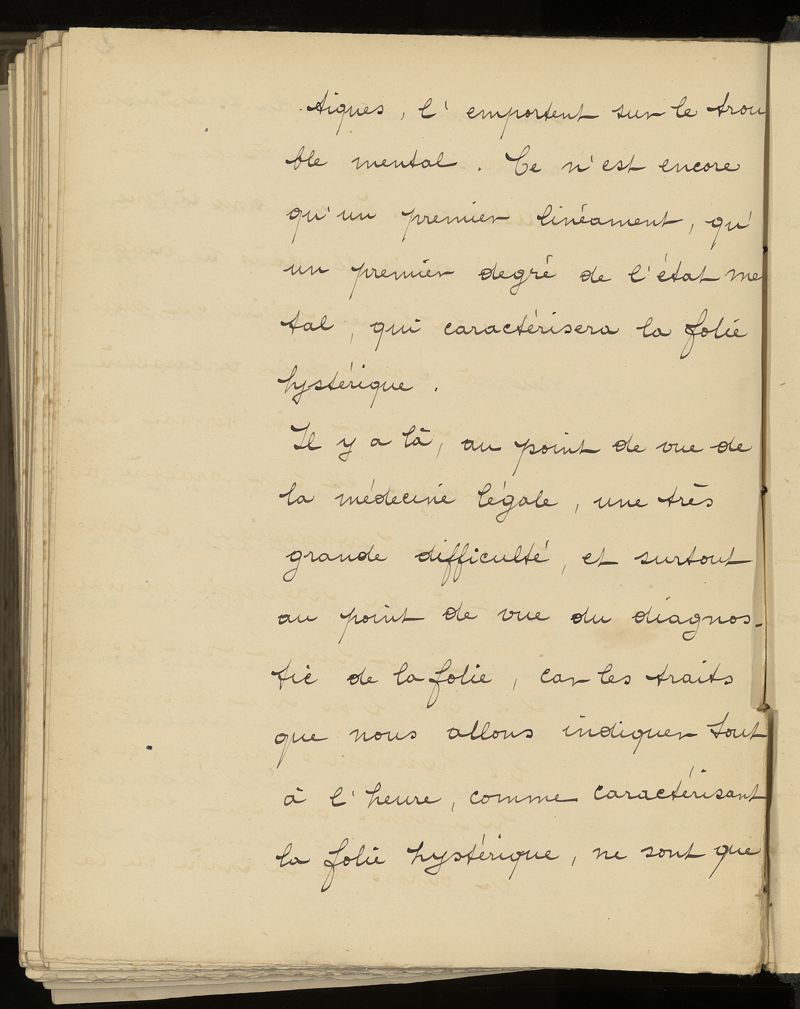 tiques, l'emportent sur le trou
ble mental. Ce n'est encore
qu'un premier linéament, qu'
un premier degré de l'état me
tal, qui caractérisera la folie
hystérique.
Il y a là, au point de vue de
la médecine légale, une très
grande difficulté, et surtout
au point de vue du diagnos-
tic de la folie, car les traits
que nous allons indiquer tout
à l'heure, comme caractérisant
la folie hystérique, ne sont que